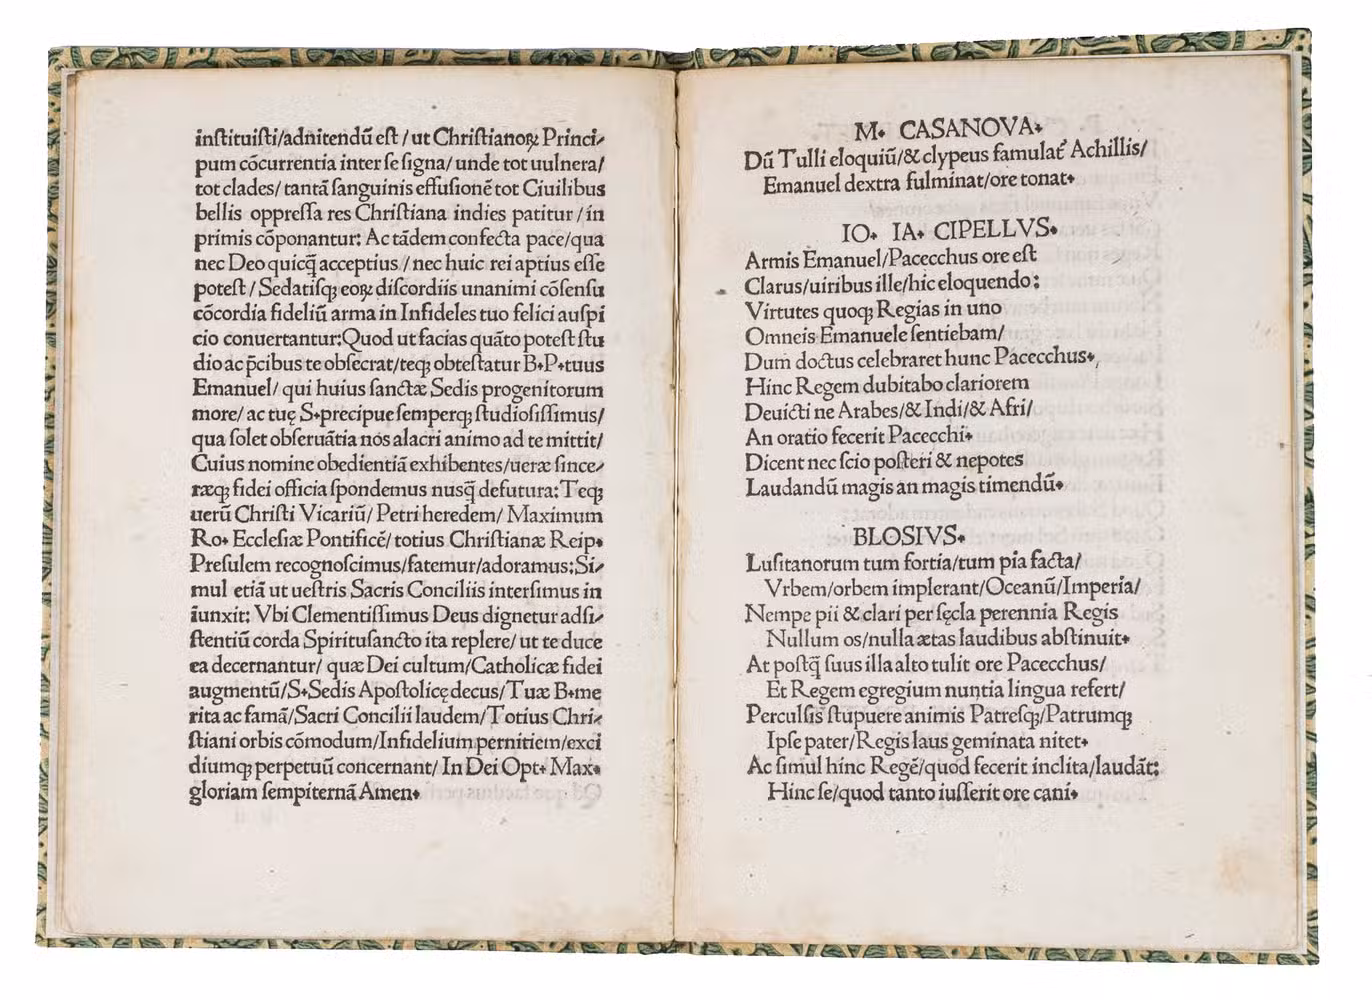 inſtituiſti/adnitendū eſt / ut Chriſtianoꝝ Princi⸗
pum cōcurrentia inter ſe ſigna/ unde tot uulnera/
tot clades/ tantā ſanguinis effuſionē tot Ciuilibus
bellis oppreſſa res Chriſtiana indies patitur / in
primis cōponantur: Ac tādem confecta pace/qua
nec Deo quicꝗ̄ acceptius / nec huic rei aptius eſſe
poteſt / Sedatiſqꝫ eoꝝ diſcordiis unanimi cōſenſu
cōcordia fideliū arma in Infideles tuo felici auſpi
cio conuertantur:Quod ut facias quāto poteſt ſtu
dio ac p̄cibus te obſecrat/teqꝫ obteſtatur B.P.tuus
Emanuel/ qui huius ſanctæ Sedis progenitorum
more/ ac tuę S.precipue ſemperqꝫ ſtudioſiſſimus/
qua ſolet obſeruātia nos alacri animo ad te mittit/
Cuius nomine obedientiā exhibentes/ueræ ſince⸗
ræqꝫ fidei officia ſpondemus nuſꝗ̄ defutura: Teqꝫ
uerū Chriſti Vicariū/ Petri heredem/ Maximum
Ro. Eccleſiæ Pontificē/ totius Chriſtianæ Reip.
Preſulem recognoſcimus/fatemur/adoramus:Si⸗
mul etiā ut ueſtris Sacris Conciliis interſimus in
iunxit: Vbi Clementiſſimus Deus dignetur adſi⸗
ſtentiū corda Spirituſancto ita replere/ ut te duce
ea decernantur/ quæ Dei cultum/Catholicæ fidei
augmentū/S.Sedis Apoſtolicę decus/Tuæ B.me
rita ac famā/Sacri Concilii laudem/Totius Chri⸗
ſtiani orbis cōmodum/Infidelium pernitiem/exci
diumqꝫ perpetuū concernant/ In Dei Opt. Max.
gloriam ſempiternā Amen.
M. CASANOVA.
Dū Tulli eloquiū/&clypeus famulat᷑ Achillis/
Emanuel dextra fulminat/ore tonat.
IO. IA. CIPELLVS.
Armis Emanuel/Pacecchus ore eſt
Clarus/uiribus ille/hic eloquendo:
Virtutes quoqꝫ Regias in uno
Omneis Emanuele ſentiebam/
Dum doctus celebraret hunc Pacecchus.
Hinc Regem dubitabo clariorem
Deuicti ne Arabes/& Indi/& Afri/
An oratio fecerit Pacecchi.
Dicent nec ſcio poſteri & nepotes
Laudandū magis an magis timendū.
BLOSIVS.
Luſitanorum tum fortia/tum pia facta/
Vrbem/orbem implerant/Oceanū/Imperia/
Nempe pii & clari per ſęcla perennia Regis
Nullum os/nulla ætas laudibus abſtinuit.
At poſtꝗ̄ ſuus illa alto tulit ore Pacecchus/
Et Regem egregium nuntia lingua refert/
Perculſis ſtupuere animis Patreſqꝫ/Patrumqꝫ
Ipſe pater/Regis laus geminata nitet.
Ac ſimul hinc Regē/quod fecerit inclita/laudāt:
Hinc ſe/quod tanto iuſſerit ore cani.